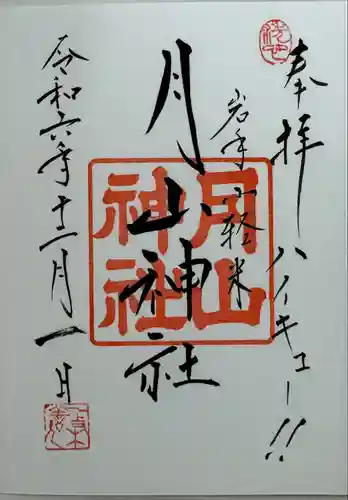 奉拝 ハイキュー!!
岩手 軽米
月山神社
令和六年十二月一日
月山
神社